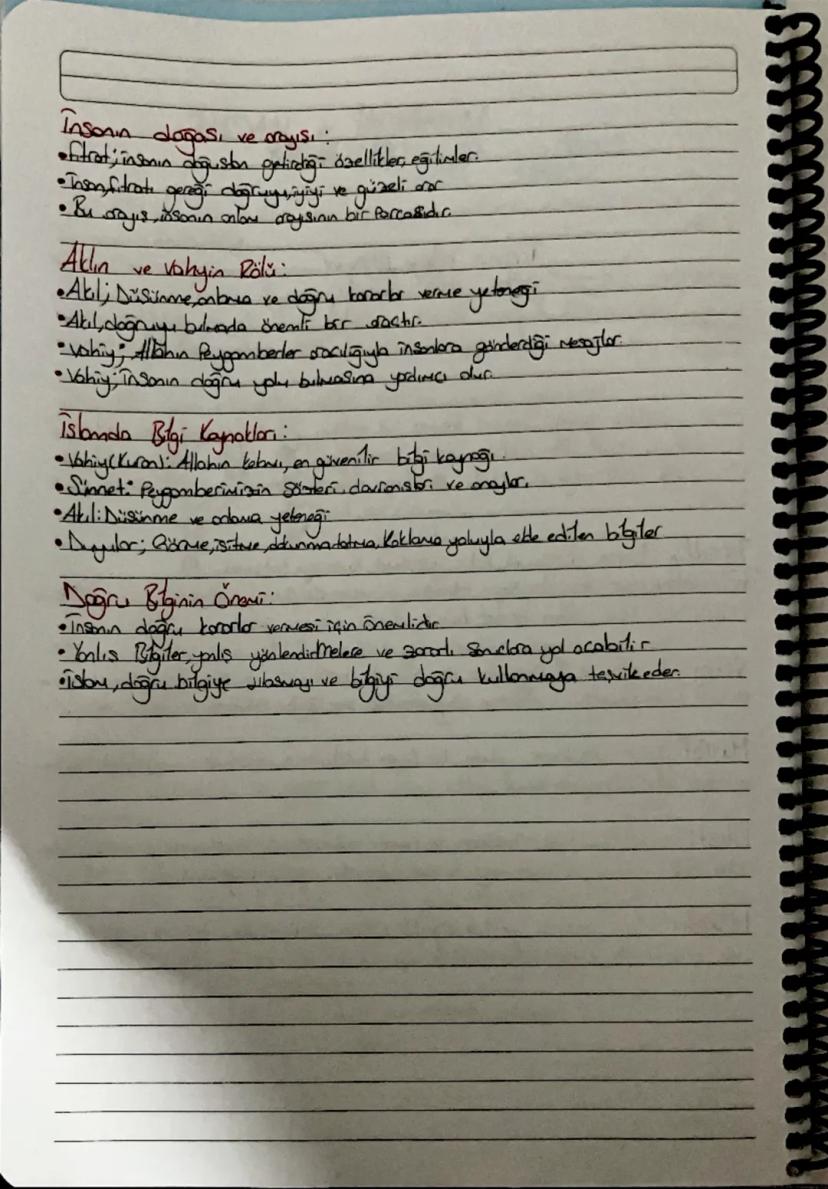 İnsanın doğası ve arayışı:
•fıtrat; insanın doğuştan getirdiği özellikler, eğilimler.
•İnsan, fıtratı gereği doğruyu, iyiyi ve güzeli arar
•Bu arayış, insanın anlam arayışının bir Parçasıdır.
Aklın ve Vahyin Rölü:
•Akıl; Düşünme, anlama ve doğru kararlar verme yeteneği
•Akıl, doğruyu bulmada önemli bir araçtır.
•Vahiy; Allahın Peygamberler aracılığıyla insanlara gönderdiği Mesajlar.
•Vahiy; İnsanın doğru yolu bulmasına yardımcı olur.
İslamda Bilgi Kaynakları:
•Vahiy(Kuran): Allahın kelamı, en güvenilir bilgi kaynağı.
•Sünnet: Peygamberimizin Sözleri, davranışları ve onayları.
•Akıl: Düşünme ve anlama yeteneği
•Duyular; Görme, işitme, dokunma, tatma, Koklama yoluyla elde edilen bilgiler
Doğru Bilginin Önemi:
•İnsanın doğru kararlar vermesi için önemlidir.
•Yanlış Bilgiler, yanlış yönlendirmelere ve zararlı Sonuçlara yol açabilir
•islam, doğru bilgiye ulaşmayı ve bilgiyi doğru kullanmaya teşvik eder.